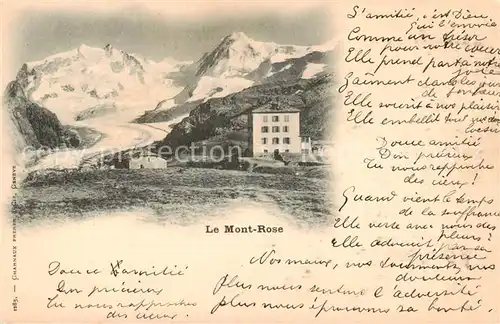 S'amitié, c'est Dieu
Qui l'envoie
Comme un trésor
pour notre cœur
Elle prend part à notre
joie
Elle sourit à nos plaisirs
Elle embellit tout
Douce amitié
Don précieux
Tu nous rapproches
des cieux!
Quand vient le temps
de la souffrance
Elle verse avec nous des
pleurs!
Elle adoucit par sa
présence
Nos maux, nos tourments, nos
douleurs
Plus nous sentons l'adversité
plus nous éprouvons sa bonté.
Le Mont-Rose
Douce l'amitié
Don précieux
Tu nous rapproches
des cieux.
CHARNAUX FRÈRES & Co., GENÈVE